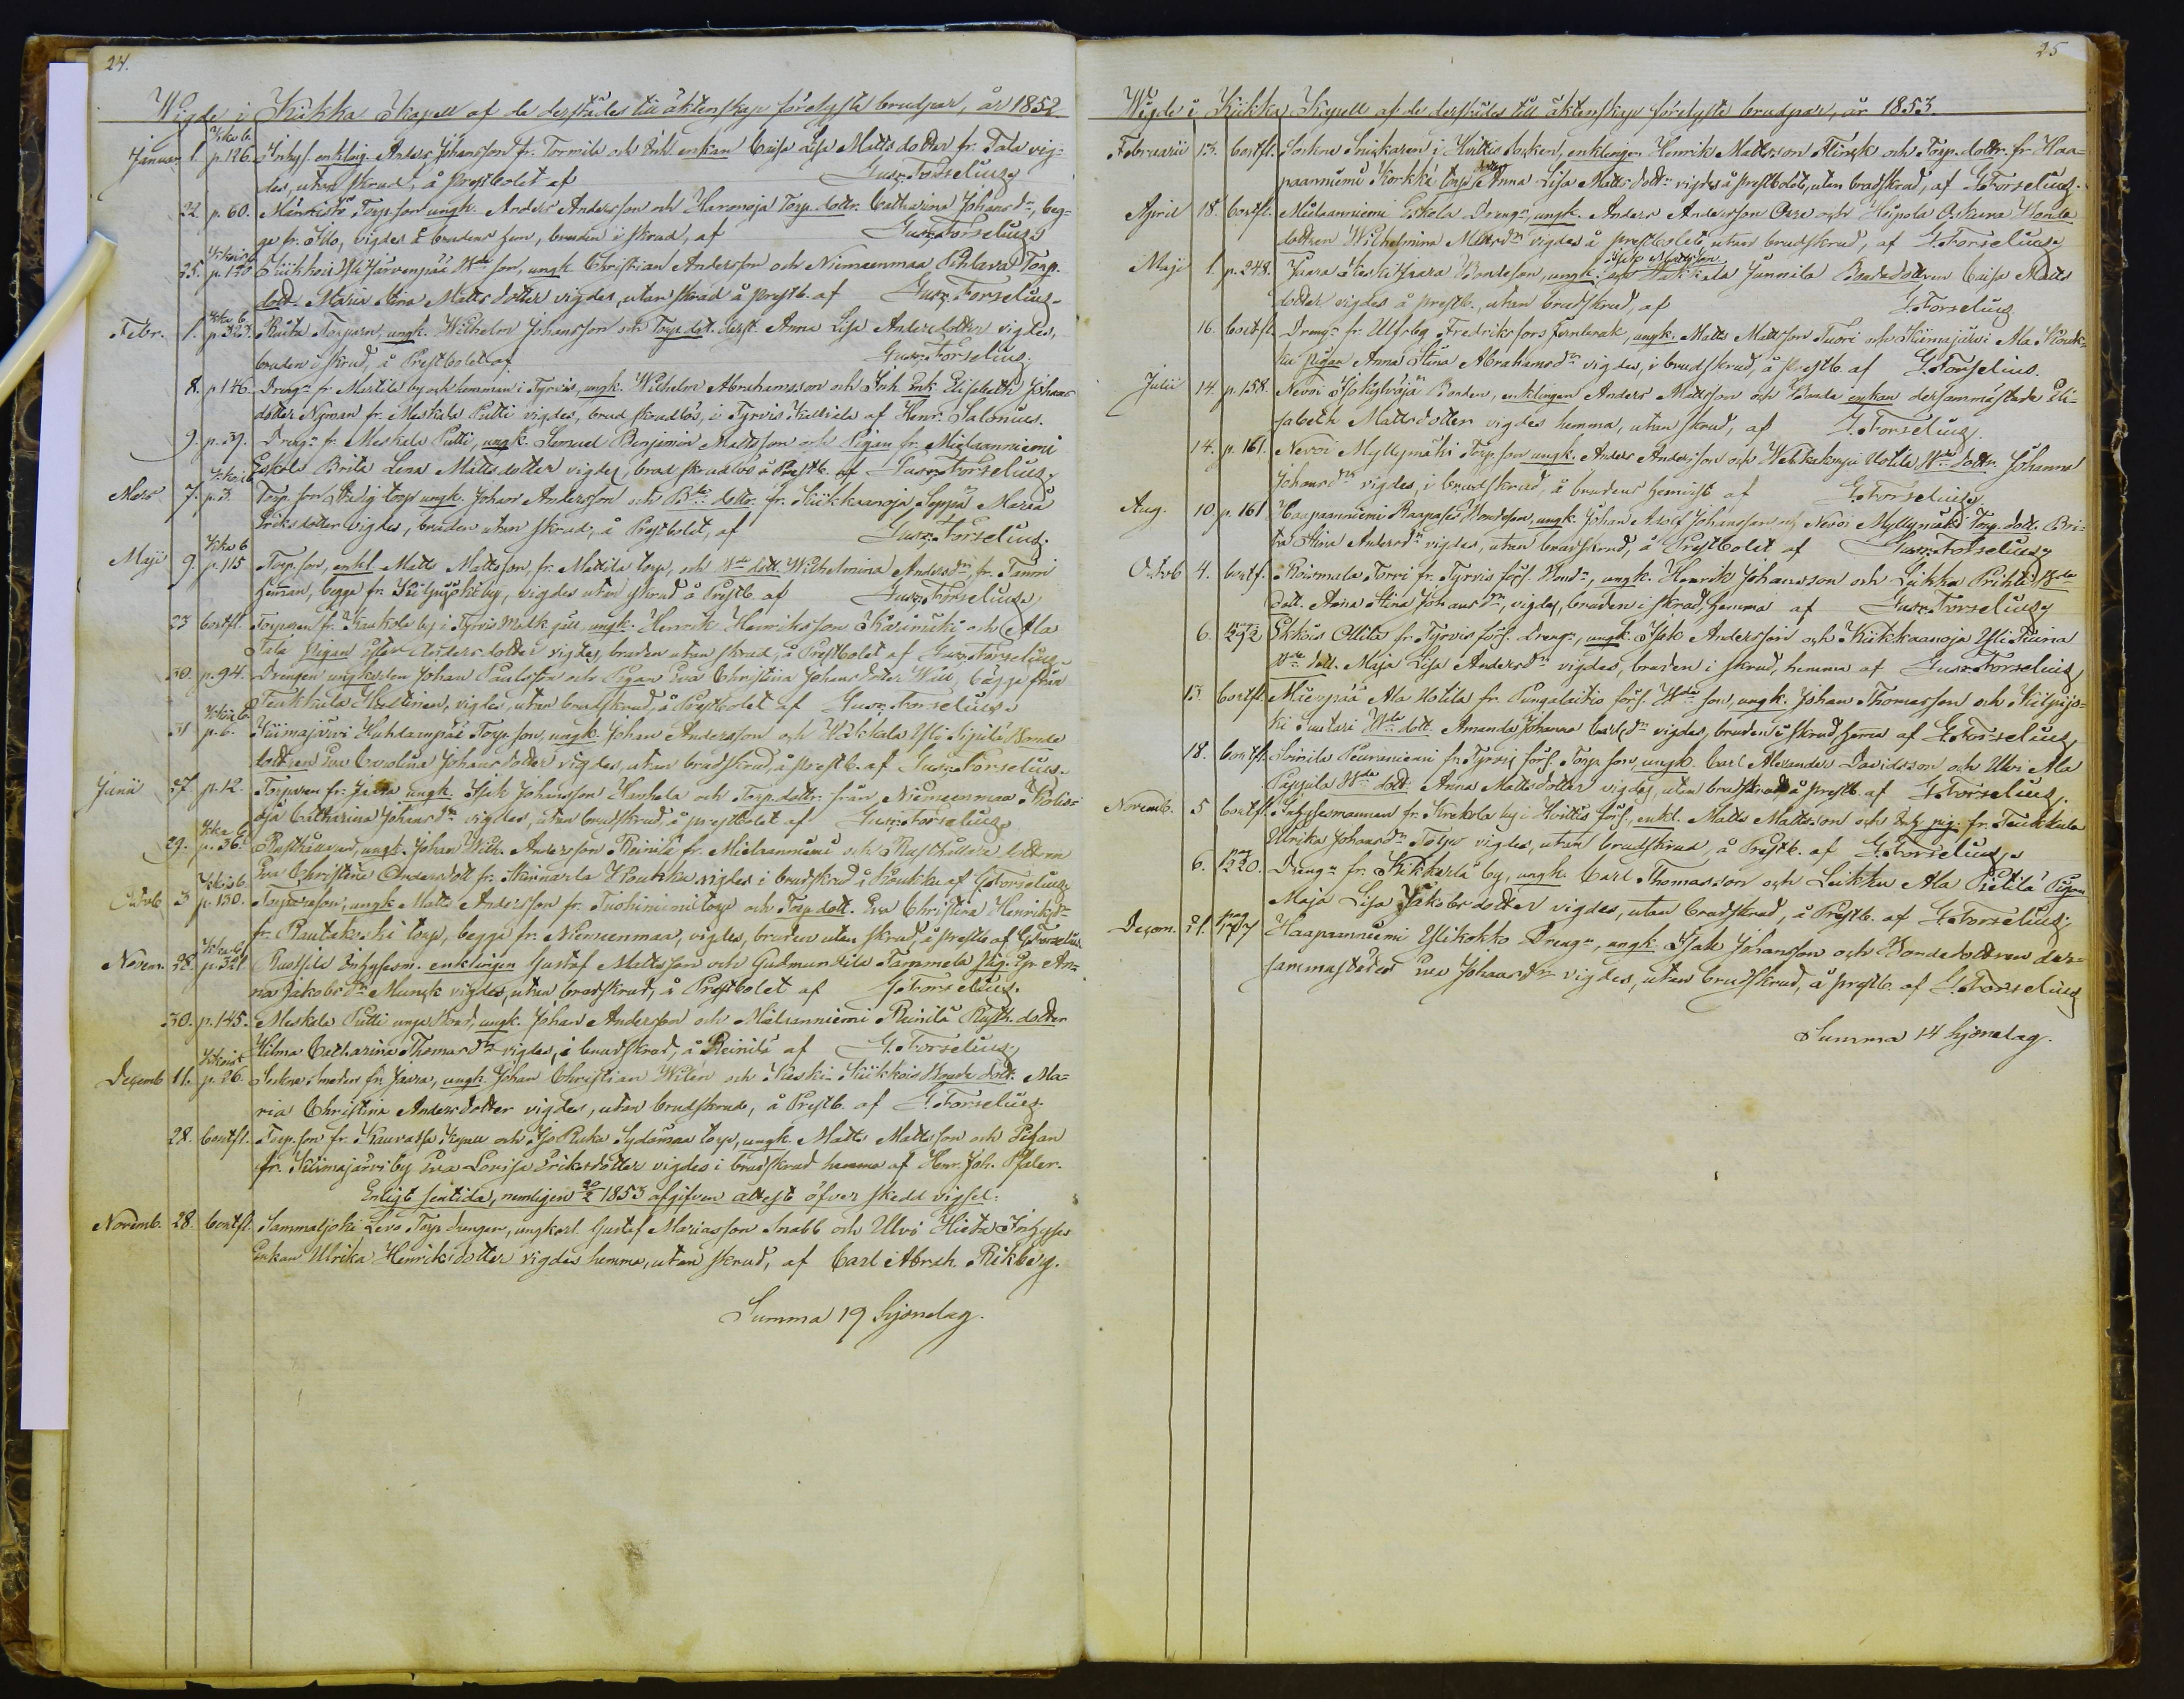 24.
Wigde i Kiikka Kapell af de derstädes till äktenskap förelysta brudpar, år 1852.
Kka b.
Januar. 1. p. 126. Inhys. enkling. Anders Johansson fr. Tormila och Inh. enkan Caisa Lisa Matts dotter fr. Tala vig=
des, utan skrud, å Prestbolet af Gust. Forselius.
22. p. 60. Männistö Torp. son ungk. Anders Andersson och Haronoja Torp. dottr. Catharina Johansdr, beg=
ge fr. Illo, vigdes i brudens hem, bruden i skrud, af Gust. Forselius.
Kkois b.
25. p. 120 Kiikkois Yli Järvenpää son, ungk. Christian Andersson och Niemenmaa Pehlava Torp.
dott. Maria Stina Matts dotter vigdes, utan skrud å prestb. af Gust. Forselius.
Kka b.
Febr. 1. p. 323. Torparen, ungk. Wilhelm Johansson och Torp. dot. derst. Anna Lisa Andersdotter vigdes,
bruden i skrud, å Prestbolet af Gust. Forselius.
8. p. 146. Drengn fr. Marttila by och hemman i Tyrvis, ungk. Wilhelm Abrahamsson och Inh. Enk. Elisabeth Johans
dotter Nyman fr. Meskala Putti vigdes, brud skrudlös, i Tyrvis Kalliala af Henr. Salonius.
9. p. 39. Drengn fr. Meskala Putti, ungk. Samuel Benjamin Mattsson och Pigan fr. Mielaanniemi
Eskola Brita Lena Mattsdotter vigdes, brud skrudlös å Prestb. af Gust. Forselius.
Kkois b.
Mars 7. p. 3. Torp. son torp ungk. Johan Andersson och dottr. fr. Kiikkaanoja Seppä Maria
Eriksdotter vigdes, bruden utan skrud, å Prestbolet, af Gust. Forselius.
Kka b
Maji 9. p. 115 Torp. son, enkl. Matts Mattsson, fr. Mattila torp, och dott. Wilhelmina Andersdr, fr. Tanni
hemman, begge fr. Kiilpijoki by, vigdes utan skrud å Prestb. af Gust. Forselius.
23 bortfl. Torparen fr. Kaukola by i Tyrvis Moderk. ungk. Henrik Henriksson Karimäki och Ala
Tala pigan Ester Anders dotter vigdes, bruden utan skrud, å Prestbolet af Gust. Forselius.
30. p. 94. Drengen ungkarlen Johan Paulsson och Pigan Eva Christina Johans dotter Wiik, bägge från
Teukkula, vigdes, utan brudskrud, å Prestbolet af Gust. Forselius.
Kkois b.
31 p. 6. Kiimajärvi Kuhdampää Torp. son, ungk. Johan Andersson och Wakkala Yli Sipilä Bonde
dottren Eva Carolina Johans dotter vigdes, utan brudskrud, å prestb. af Gust. Forselius.
Junii 27. p. 12. Torparen fr. Jaara ungk. Isak Johansson Hankala och Torp. dottr. från Niemenmaa
oja Catharina Johansdr vigdes, utan brudskrud å prestbolet af Gust. Forselius.
Kka b.
29. p. 36. Rusthållaren, ungk. Johan Wilh. Andersson Reinilä fr. Mielaanniemi och Rusthållare dottren
Eva Christina Andersdott fr. Skinnarla Koukku vigdes i brudskrud i Koukku af G. Forselius.
Kkois b.
Octob 3 p. 130. Torpareson, ungk. Matts Andersson fr. Tuohiniemi torp och Torp. dott. Eva Christina Henriksdr
fr. Rautakoski torp, begge fr. Niemenmaa, vigdes, bruden utan skrud, å prestb. af G. Forselius.
Kka b.
Novem. 28. p. 321 Inhyseom. enklingen Gustaf Mattsson och Gudmundila Tammela An=
na Jakobsdr Munck vigdes, utan brudskrud, å Prestbolet af G. Forselius.
30. p. 145. Meskala Putti unga, ungk. Johan Andersson och Mielaanniemi Reinilä Rusth. dotter
Wilma Catharina Thomasdr vigdes, i brudskrud, å Reinilä af G. Forselius.
Kkois b
Decemb 11. p. 26. Sockne Smeden fr. Jaara, ungk. Johan Christian Witén och Keski Kiikkois Bonde dott. Ma=
ria Christina Andersdotter vigdes, utan brudskrud, å Prestb. af G. Forselius.
28. bortfl. Torp. son fr. Kauvatsa Kapell och torp, ungk. Matts Mattsson och Pigan
fr. Kiimajärvi by Eva Lovisa Eriksdotter vigdes i brudskrud hemma af Henr. Joh. Pfaler.
Enligt sentida, nemligen 20/2 1853 afgifven attest öfver skedd vigsel.
Novemb. 28. bortfl. Sammaljoki Levo Torp. drengen, ungkarl. Gustaf Mariasson Snabb och Ulvi Hieta Inhyses
Enkan Ulrika Henriksdotter vigdes hemma, utan skrud, af Carl Abrah. Rikberg.
Summa 19 hjonelag.
25
Wigde i Kiikka Kapell af de derstädes till äktenskap förelysta brudpar, år 1853.
Februarii 13. bortfl. Sockne Snickaren i Huittis Socken, enklingen Henrik Mattsson Flinck och Torp. dottr. fr. Haa=
paaniemi Korkki torp Anna Lisa Matts dottr vigdes å prestbolet, utan brudskrud, af G. Forselius.
April 18. bortfl. Mielaanniemi Eskola Drengn, ungk. Anders Andersson Orre och Heipola Bonde
dottren Wilhelmina Mattsdr vigdes å prestbolet, utan brudskrud, af G. Forselius.
Isak Mattsson
Maji 1. p. 248. Jaara Keski Jaara Bondeson, ungk. och Junnila Bondedottren Caisa Matts
dotter vigdes å prestb., utan brudskrud, af G. Forselius.
16. bortfl. Drengn fr. Ulfsby Fredriksfors, ungk. Matts Mattsson Tuori och Kiimajärvi Ala Kouk=
ku pigan Anna Stina Abrahamsdr vigdes, i brudskrud, å prestb. af G. Forselius.
Julii 14. p. 158. Nevoi Bonden, enklingen Anders Mattsson och Bonde enkan dersammastädes Eli=
sabeth Mattsdotter vigdes hemma, utan skrud, af G. Forselius.
14. p. 161. Nevoi Myllymäki Torp. son ungk. Anders Andersson och Uotila dottr. Johanna
Johansdr vigdes, i brudskrud, å brudens hemvist af G. Forselius.
Aug. 10. p. 161 Haapaanniemi Raapala Bondeson, ungk. Johan Adolf Johansson och Nevoi Myllymäki Torp. dott. Bri=
ta Stina Andersdr vigdes, utan brudskrud, å Prestbolet af Gust. Forselius.
Octob 4. bortf. Roismala Torvi fr. Tyrvis förs. Bond., ungk. Henrik Johansson och Leikku Prihti
dott. Anna Stina Johansdr, vigdes, bruden i skrud, hemma af Gust. Forselius.
6. pag 292 Ekkois Ollila fr. Tyrvis förs. drengn, ungk. Isak Andersson och Kiikkaanoja Yli Knina
dott. Maja Lisa Andersdr vigdes, bruden i skrud, hemma af Gust. Forselius.
13. bortfl. Mievpää Ala Uotila fr. Pungalaitio förs. son, ungk. Johan Thomasson och Kiilpijo=
ki Suutari dott. Amanda Johanna Carlsdr vigdes, bruden i skrud, hemma af G. Forselius.
18. bortfl. Heinila Peuraniemi fr. Tyrvis förs. Torp. son, ungk. Carl Alexander Davidsson och Ulvi Ala
Pappila dott. Anna Mattsdotter vigdes, utan brudskrud å prestb. af G. Forselius.
Novemb. 5 bortfl. Inhysesmannen fr. Krekola by i Huittis förs., enkl. Matts Mattsson och Inh. pig. fr. Teukkula
Ulrika Johansdr vigdes, utan brudskrud, å Prestb. af G. Forselius.
6. pag 220. Drengn fr. Kikkerlä by, ungk. Carl Thomasson och Leikku Ala Pietilä Pigan
Maja Lisa Jakobs dotter vigdes, utan brudskrud, å Prestb. af G. Forselius.
Decem. 21. Haapaanniemi Ylikokko Drengn, ungk. Isak Johansson och Bondedottren der=
sammastädes Eva Johansdr vigdes, utan brudskrud, å prestb. af G. Forselius
Summa 14 hjonelag.